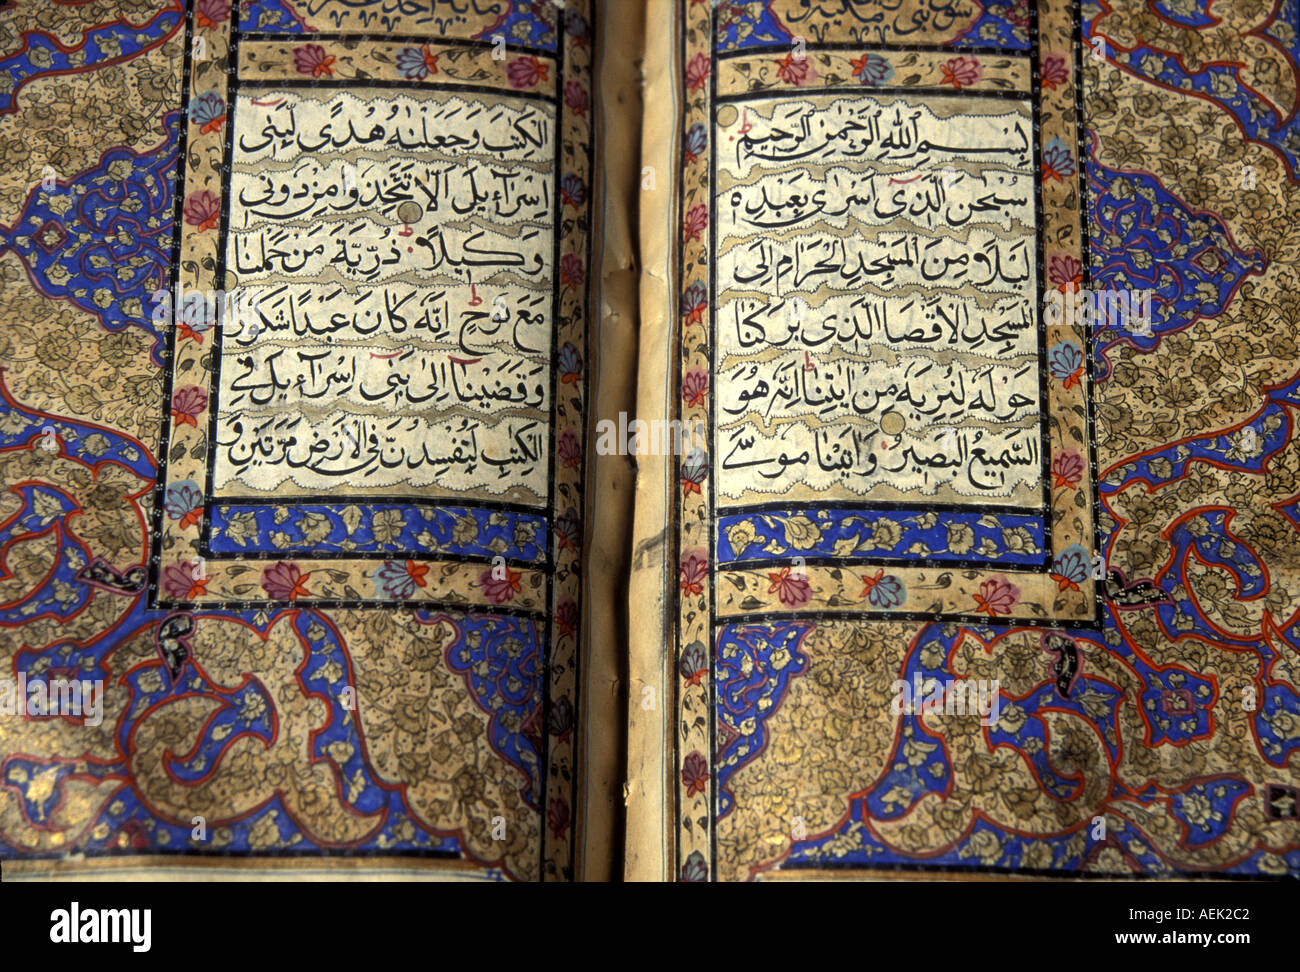 بِسْمِ اللهِ الرَّحْمٰنِ الرَّحِيمِ
سُبْحٰنَ الَّذِىٓ اَسْرٰى بِعَبْدِهٖ
لَيْلًا مِنَ الْمَسْجِدِ الْحَرَامِ اِلَى
الْمَسْجِدِ الْاَقْصَا الَّذِى بٰرَكْنَا
حَوْلَهُ لِنُرِيَهُ مِنْ اٰيٰتِنَا اِنَّهُ هُوَ
السَّمِيعُ الْبَصِيرُ وَاٰتَيْنَا مُوسَى
الْكِتٰبَ وَجَعَلْنٰهُ هُدًى لِبَنِىٓ
اِسْرَآءِيلَ اَلَّا تَتَّخِذُوا مِنْ دُونِى
وَكِيلًا ذُرِّيَّةَ مَنْ حَمَلْنَا
مَعَ نُوحٍ اِنَّهُ كَانَ عَبْدًا شَكُورًا
وَقَضَيْنَآ اِلٰى بَنِىٓ اِسْرَآءِيلَ فِى
الْكِتٰبِ لَتُفْسِدُنَّ فِى الْاَرْضِ مَرَّتَيْنِ وَ
alamy
Image ID: AEK2C2
www.alamy.com